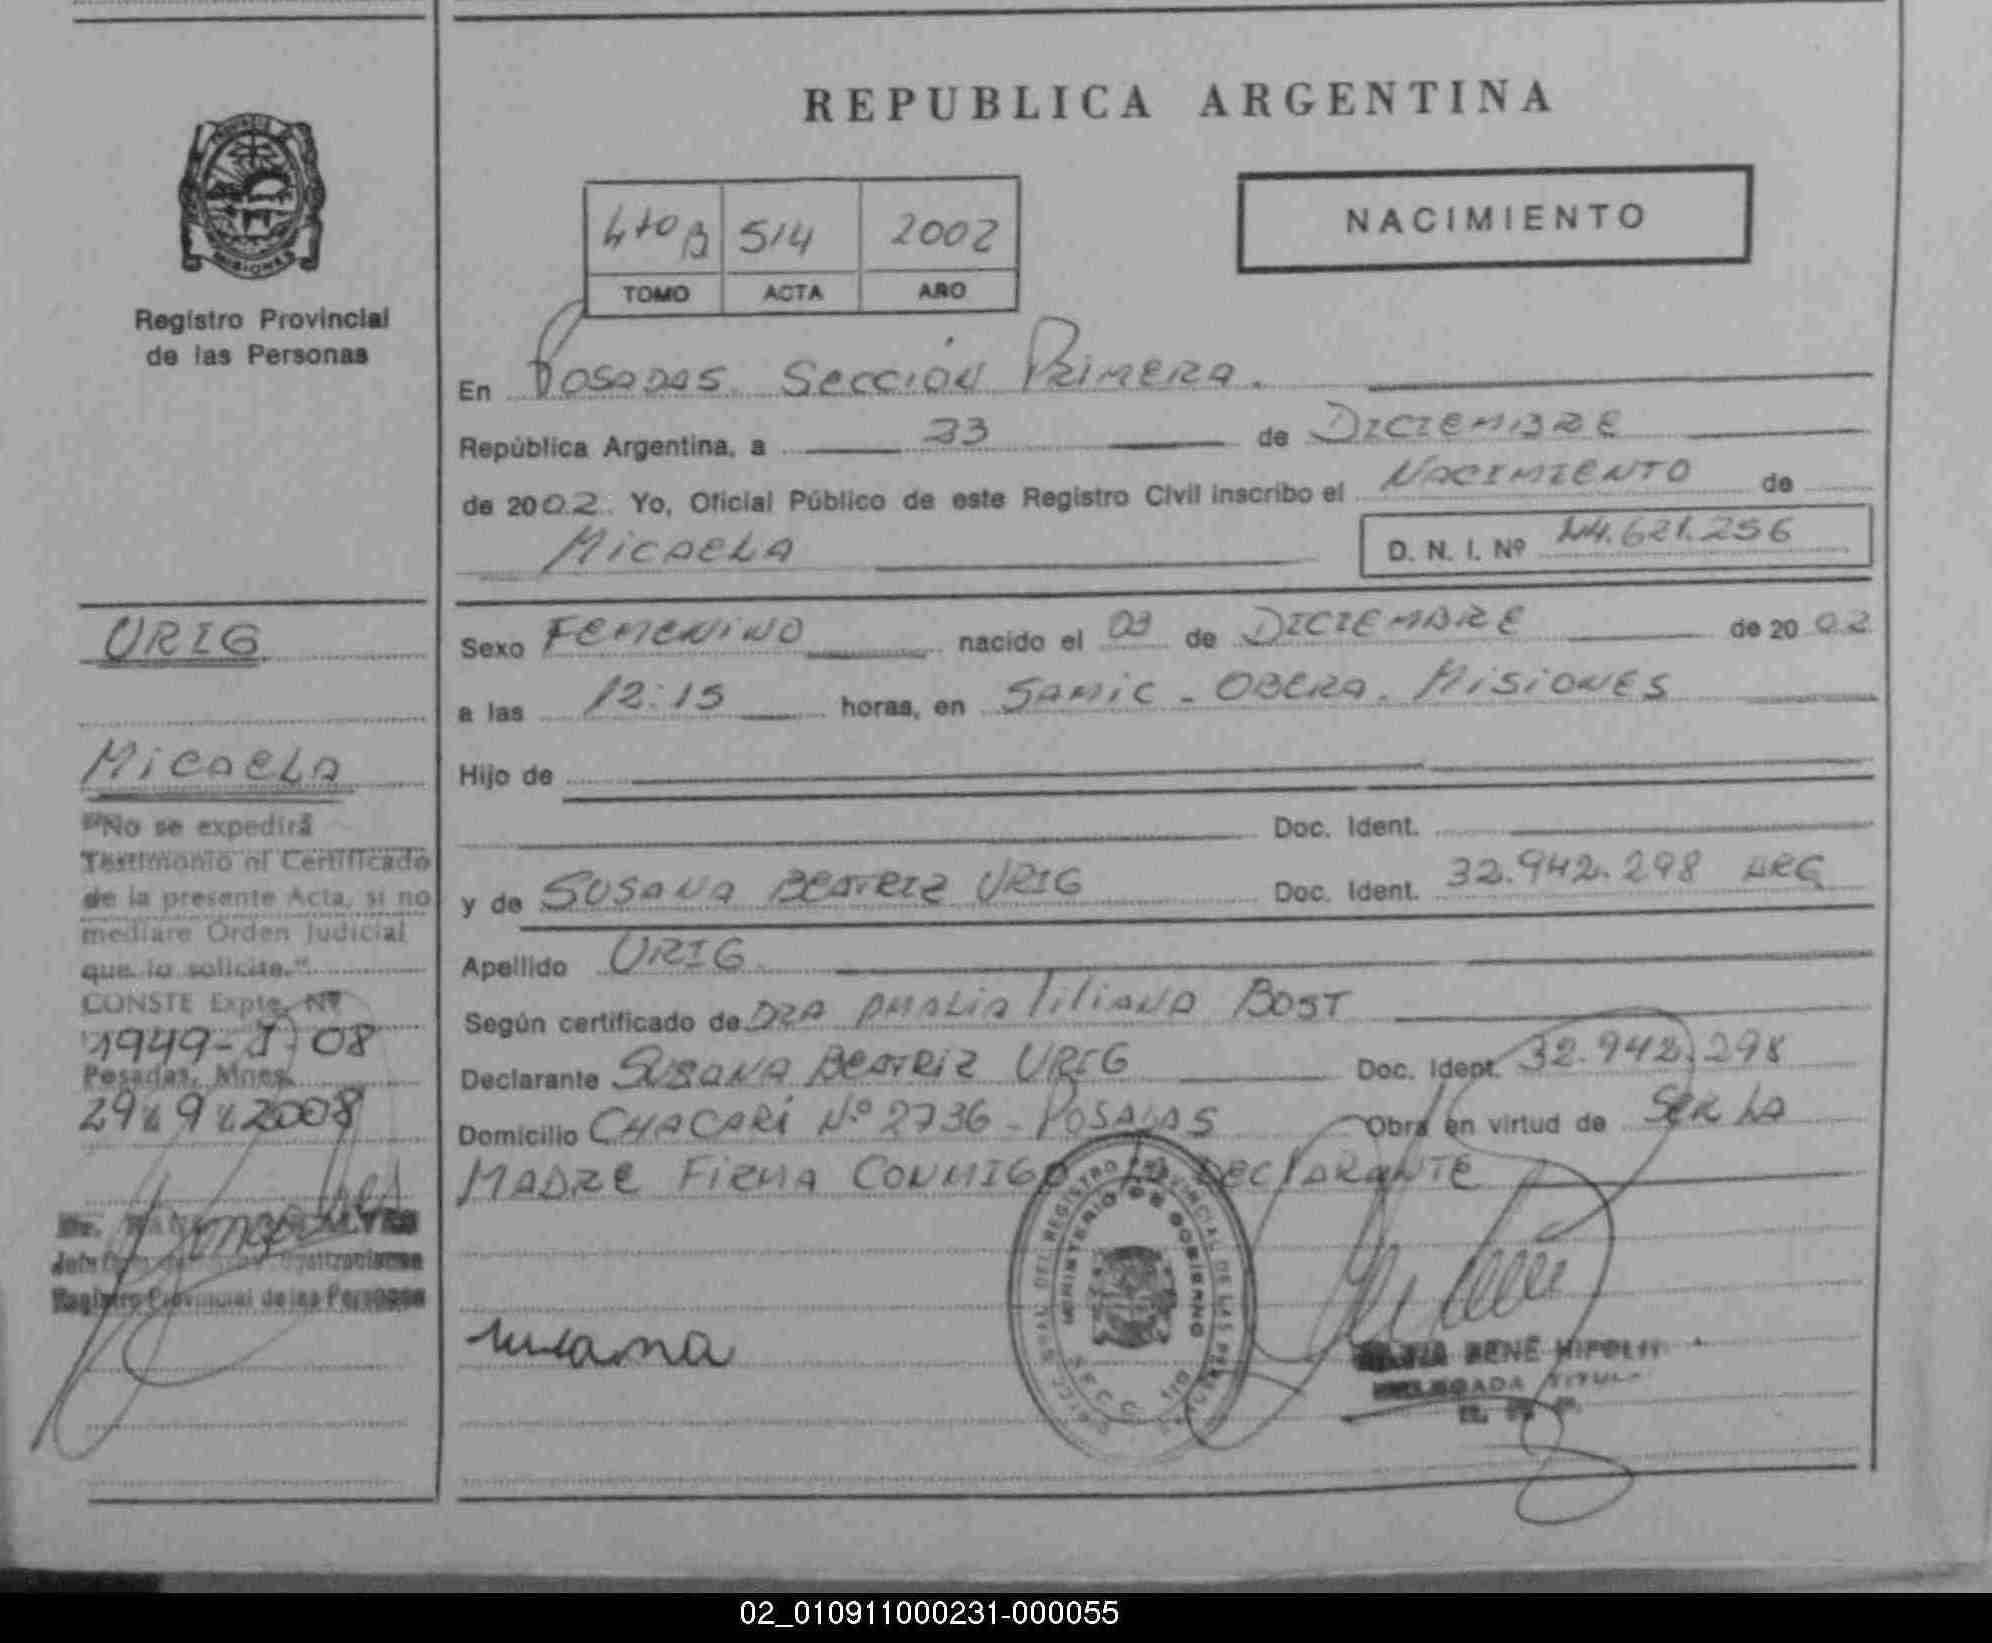 REPUBLICA ARGENTINA
NACIMIENTO
4to B 514 2002
TOMO ACTA AÑO
MISIONES
Registro Provincial
de las Personas
En Posadas Sección Primera.
República Argentina, a 23 de DICIEMBRE
de 2002 Yo, Oficial Público de este Registro Civil inscribo el NACIMIENTO de
MicaeLA D. N. I. Nº 44.621.256
URIG
MicaeLA
Sexo FEMENINO nacido el 03 de DICIEMBRE de 2002
a las 12:15 horas, en SAMIC - OBERA. MISIONES
Hijo de
Doc. Ident.
y de SUSANA BEATRIZ URIG Doc. Ident. 32.942.298 ARG
Apellido URIG
Según certificado de DRA AMALIA liliANA BOST
Declarante SUSANA BEATRIZ URIG Doc. Ident. 32.942.298
Domicilio CHACARÍ Nº 2736 - POSADAS Obra en virtud de SER LA
MADRE FIRMA CONMIGO LA DEClARANTE
"No se expedirá
Testimonio ni Certificado
de la presente Acta, si no
mediare Orden Judicial
que lo solicite."
CONSTE Expte. Nº
1949-J-08
Posadas, Mnes.
29 9 2008
Registro Provincial de las Personas
susana
MINISTERIO DE GOBIERNO
RENE HIPOLIT
DELEGADA TITUL
02_010911000231-000055